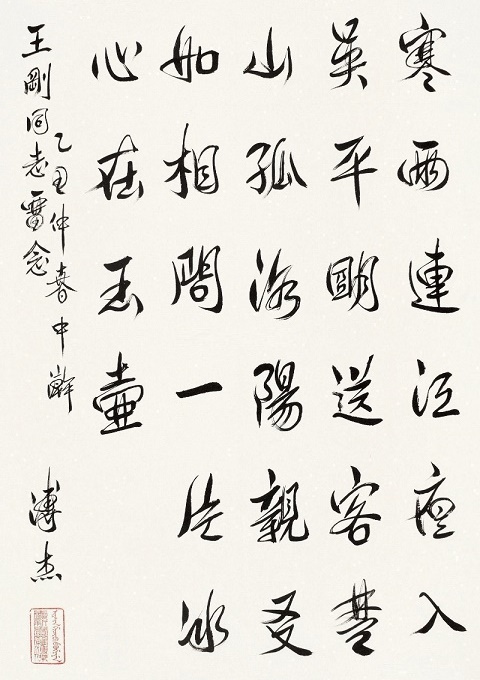 寒雨連江亱入
吳平明送客楚
山孤洛陽親友
如相問一片冰
心在玉壺
王剛同志畱念
乙丑仲春中澣
溥杰